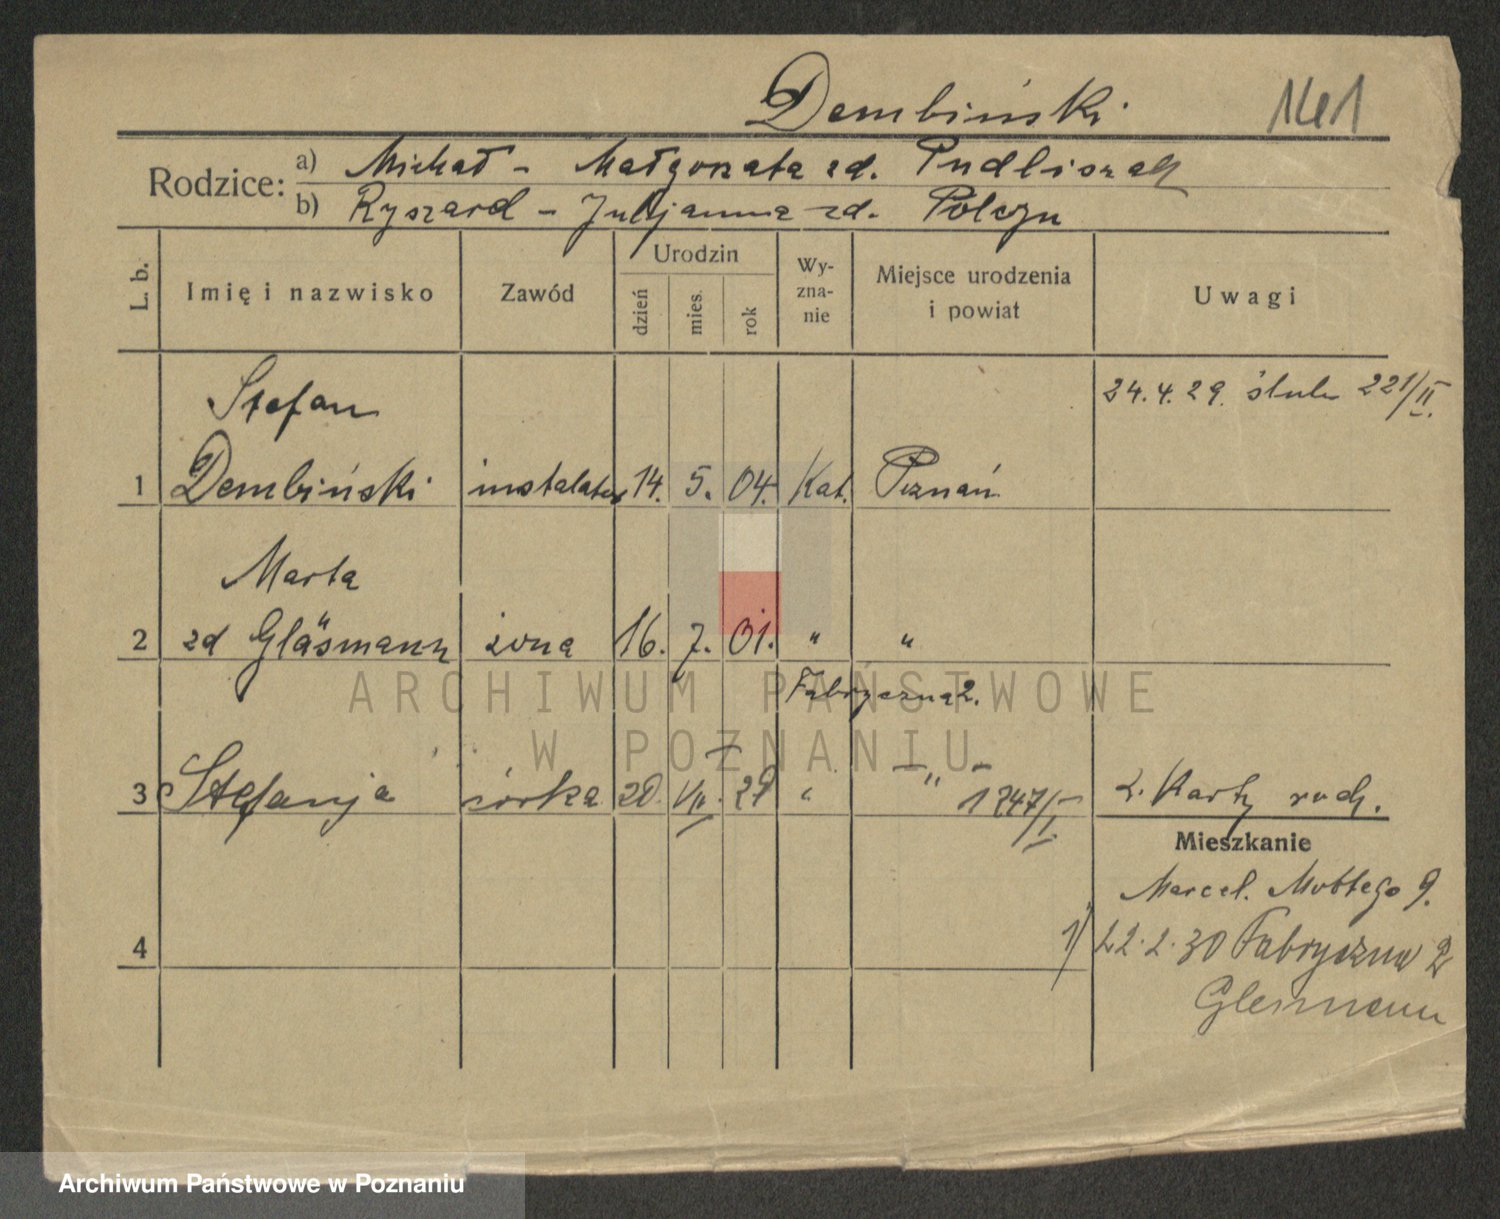 Dembiński 1411
Rodzice: a) Michał - Małgorzata zd. Pudliszak
b) Ryszard - Julijanna zd. Polczyn
L. b. Imię i nazwisko Zawód Urodzin Wy-zna-nie Miejsce urodzenia i powiat Uwagi
dzień mies. rok
24.4.29. ślub 221/II.
Stefan
1 Dembiński instalator 14. 5. 04. Kat. Poznań
Marta
2 zd Gläsmann żona 16. 7. 01. " "
Fabryczna 2.
3 Stefanja córka 20. VII. 29 " "
1247/I
z. Karty rodz.
Mieszkanie
Marcel. Mottego 9.
4
1) 22.2.30 Fabryczna 2
Glesmann
ARCHIWUM PAŃSTWOWE
W POZNANIU
Archiwum Państwowe w Poznaniu